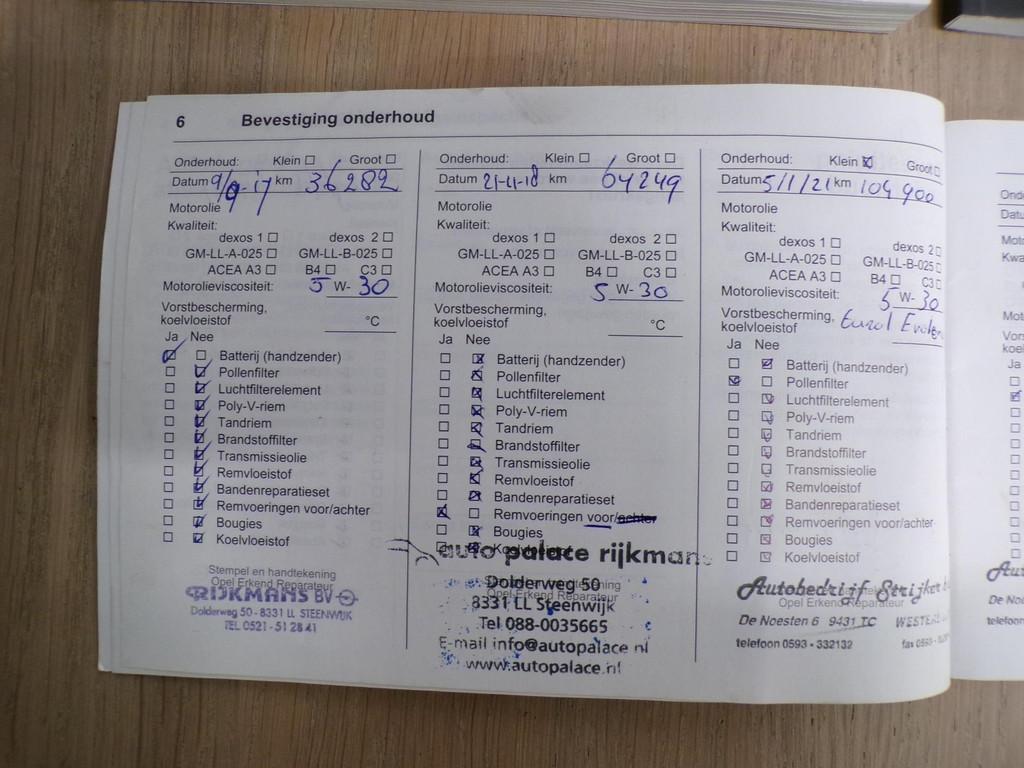 6 Bevestiging onderhoud
Onderhoud: Klein Groot
Datum 9/9-17 km 36282
Motorolie
Kwaliteit:
dexos 1 dexos 2
GM-LL-A-025 GM-LL-B-025
ACEA A3 B4 C3
Motorolieviscositeit: 5 W- 30
Vorstbescherming,
koelvloeistof °C
Ja Nee
Batterij (handzender)
Pollenfilter
Luchtfilterelement
Poly-V-riem
Tandriem
Brandstoffilter
Transmissieolie
Remvloeistof
Bandenreparatieset
Remvoeringen voor/achter
Bougies
Koelvloeistof
Stempel en handtekening
Opel Erkend Reparateur
RIJKMANS BV
Dolderweg 50 - 8331 LL STEENWIJK
TEL 0521 - 51 28 41
Onderhoud: Klein Groot
Datum 21-11-18 km 64249
Motorolie
Kwaliteit:
dexos 1 dexos 2
GM-LL-A-025 GM-LL-B-025
ACEA A3 B4 C3
Motorolieviscositeit: 5 W- 30
Vorstbescherming,
koelvloeistof °C
Ja Nee
Batterij (handzender)
Pollenfilter
Luchtfilterelement
Poly-V-riem
Tandriem
Brandstoffilter
Transmissieolie
Remvloeistof
Bandenreparatieset
Remvoeringen voor/achter
Bougies
Koelvloeistof
auto palace rijkmans
Dolderweg 50
Opel Erkend Reparateur
8331 LL Steenwijk
Tel 088-0035665
E-mail info@autopalace.nl
www.autopalace.nl
Onderhoud: Klein Groot
Datum 5/1/21 km 104900
Motorolie
Kwaliteit:
dexos 1 dexos 2
GM-LL-A-025 GM-LL-B-025
ACEA A3 B4 C3
Motorolieviscositeit: 5 W- 30
Vorstbescherming, Eurol
koelvloeistof
Ja Nee
Batterij (handzender)
Pollenfilter
Luchtfilterelement
Poly-V-riem
Tandriem
Brandstoffilter
Transmissieolie
Remvloeistof
Bandenreparatieset
Remvoeringen voor/achter
Bougies
Koelvloeistof
Autobedrijf Strijker
Opel Erkend Reparateur
De Noesten 6 9431 TC
telefoon 0593 - 332132 fax 0593
Ja
De
telefoon